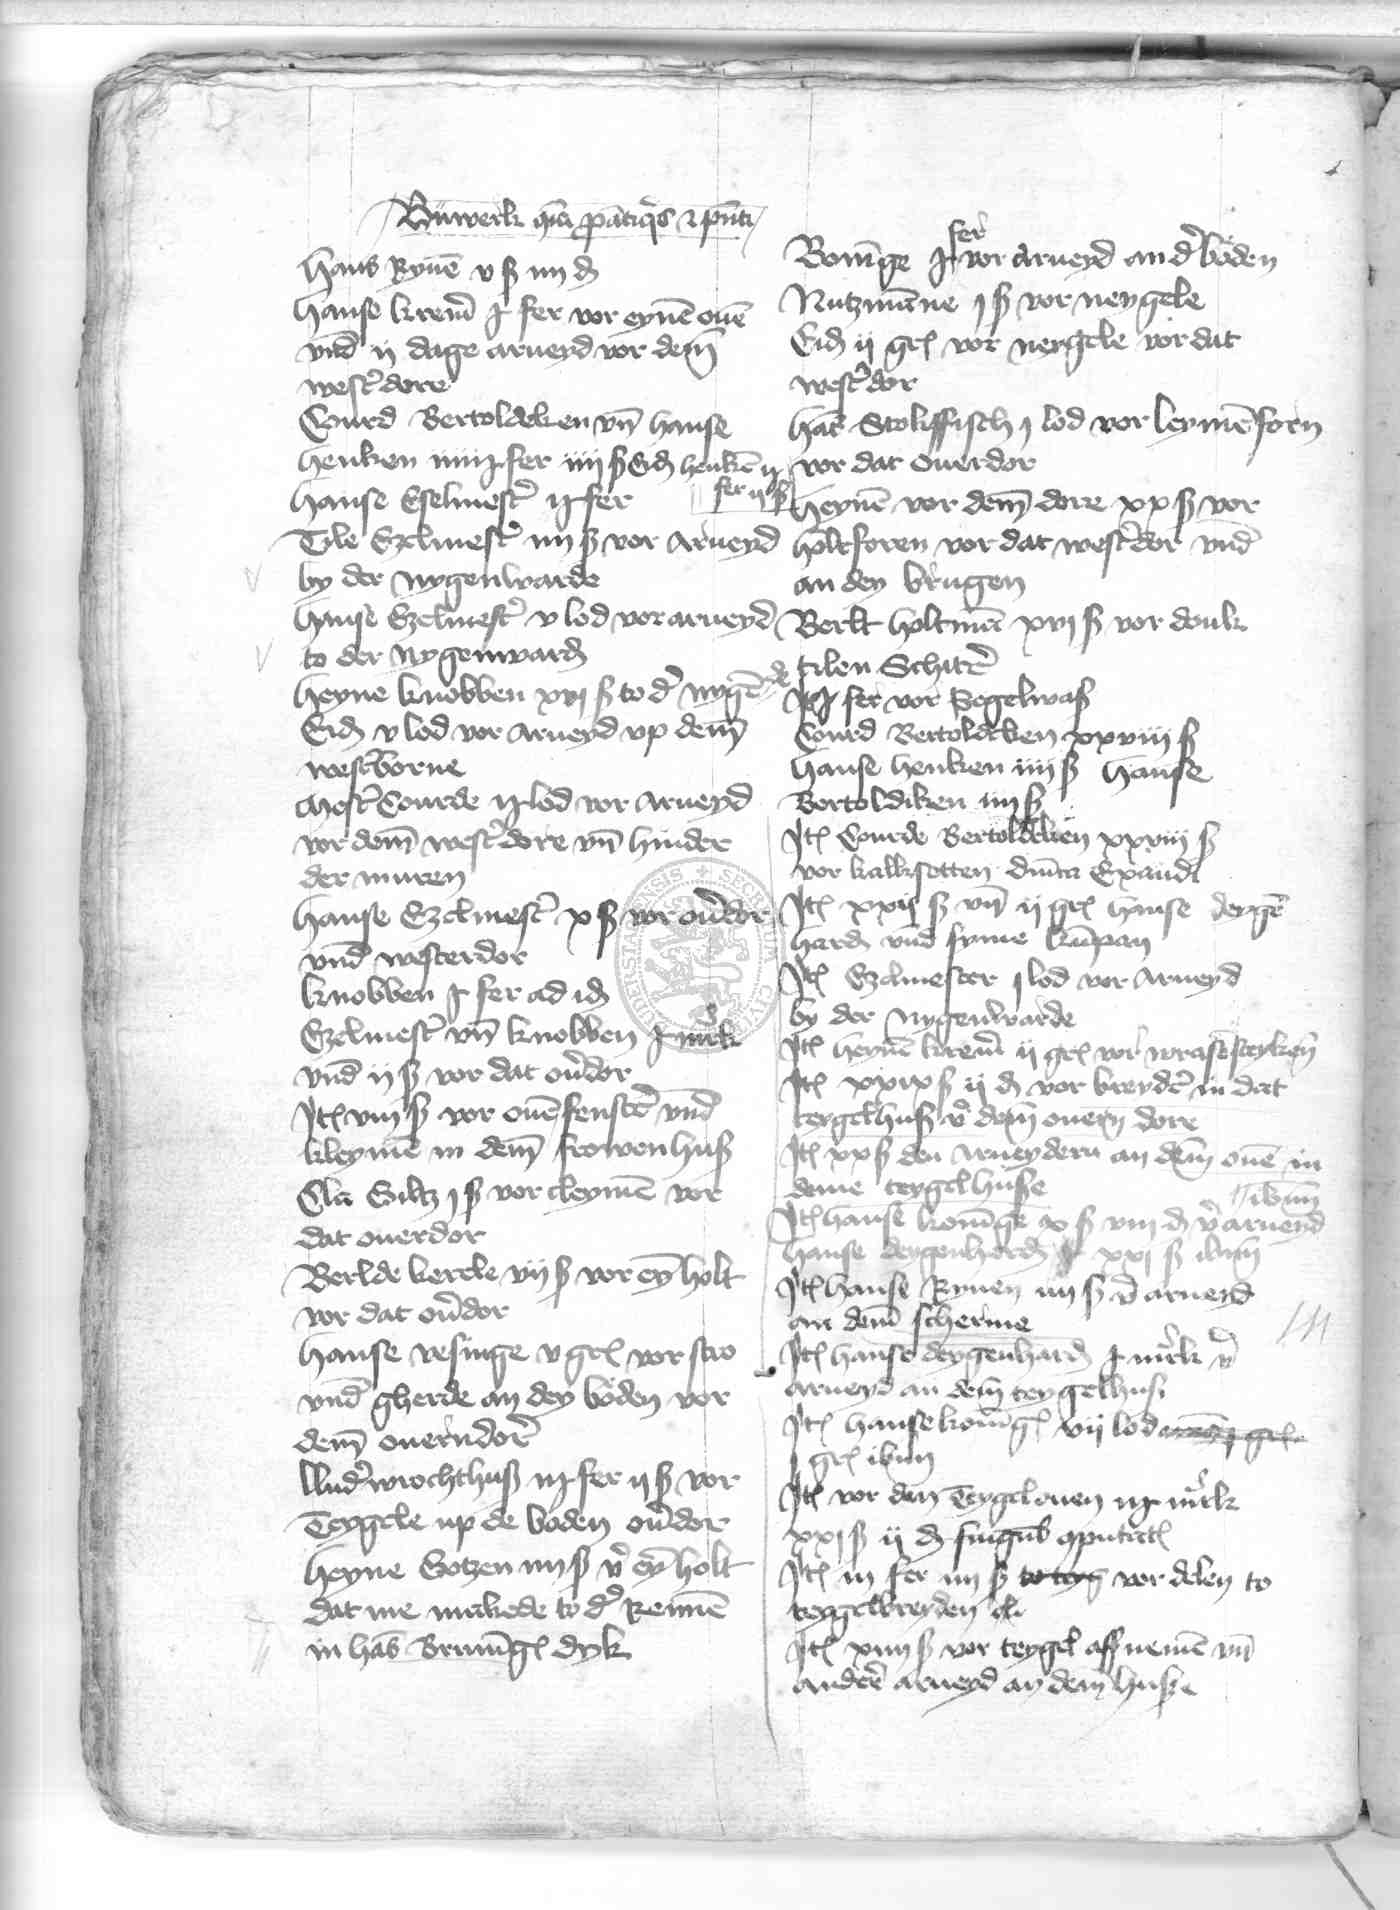 Buwerk
Hans Rynē v ß iiij ₰
Hanse krem̄ j fer vor eynē ouē
vnd ij dage arueyd vor dem̄
west'dore
Courd Bertoldeken vn̄ hanse
henken fer iiij ß Eid̄ henkē
fer ij ß
hanse Eselmest' fer
Tile Ezelmest' iiij ß vor Arueyd
by der nygenwarde
hanse Ezelmest' v lod vor arueyd
to der Nygenward̄
heyne knobben xvj ß to d' nygē
Eid̄ v lod vor arueyd vp dem̄
west'borne
Mest' Courde lod vor Arueyd
vor dem̄ west'dore vn̄ hinder
der muren
hanse Ezelmest' x ß vor ou'dor
vnd westerdor
knobben fer ad id̄
Ezelmest' vn̄ knobben mrk
vnd ij ß vor dat ou'dor
Itꝭ viij ß vor ouē fenst' vnd
kleymē in dem̄ frowenhuß
j ß vor cleymē vor
dat ouerdor
Berlde kercle vij ß vor ey holt
vor dat ou'dor
hanse resinge v grꝭ vor stro
vnd gherde an dey boden vor
dem̄ ouerndor'
fer ij ß vor
Teygele up de boden ou'dor
heyne Gotzen iiij ß v' ey holt
dat me makede to d' Rennē
in hās Brunigꝭ dyk
Konīge fer vor Arueyd an d' boden
Nutzmāne j ß vor neygele
Eid̄ ij grꝭ vor neygele vor dat
west'dor
hās Stokffisch j lod vor leymē forn
vor dat ouerdor
heynē vor dem̄ dore xx ß vor
holtforen vor dat west'dor vnd
an dey brugen
Berlt holtmā xvj ß vor
fer vor Segelwaß
Courd Bertoldeken xxviij ß
hanse henken iiij ß hanse
Bertoldiken iiij ß
Itꝭ Courde Bertoldeken xxviij ß
vor kalksetten dn̄ica Exaudi
Itꝭ xxij ß vn̄ ij grꝭ hanse deygē
hard̄ vnd syme kūpan
Itꝭ Ezelmester j lod vor Arueyd
by der nygenwarde
Itꝭ heynē krem̄ ij grꝭ vor wrasē steyken
Itꝭ xxix ß ij ₰ vor breyd' in dat
teygelhuß v' dem̄ ouern dore
Itꝭ xx ß den Arueydern an dem̄ ouē in
deme teygelhuße
ibim̄
Itꝭ hanse konīge x ß viij ₰ v' arueyd
hanse deygenhard̄ xxj ß ibim̄
Itꝭ hanse Rynen iiij ß v' arueyd
an dem̄ scherme
Itꝭ hanse deygenhard̄ mrk v'
arueyd an dem̄ teygelhuß
Itꝭ hanse konīgꝭ vij lod
j grꝭ ibim̄
Itꝭ vor den Teygelouen mrk
xxj ß ij ₰ singul' 9putatꝭ
Itꝭ iij fer iiij ß vor delen to
teygelbreyden
Itꝭ xiiij ß vor teygel affnemē vn̄
ander' arueyd an dem̄ huße